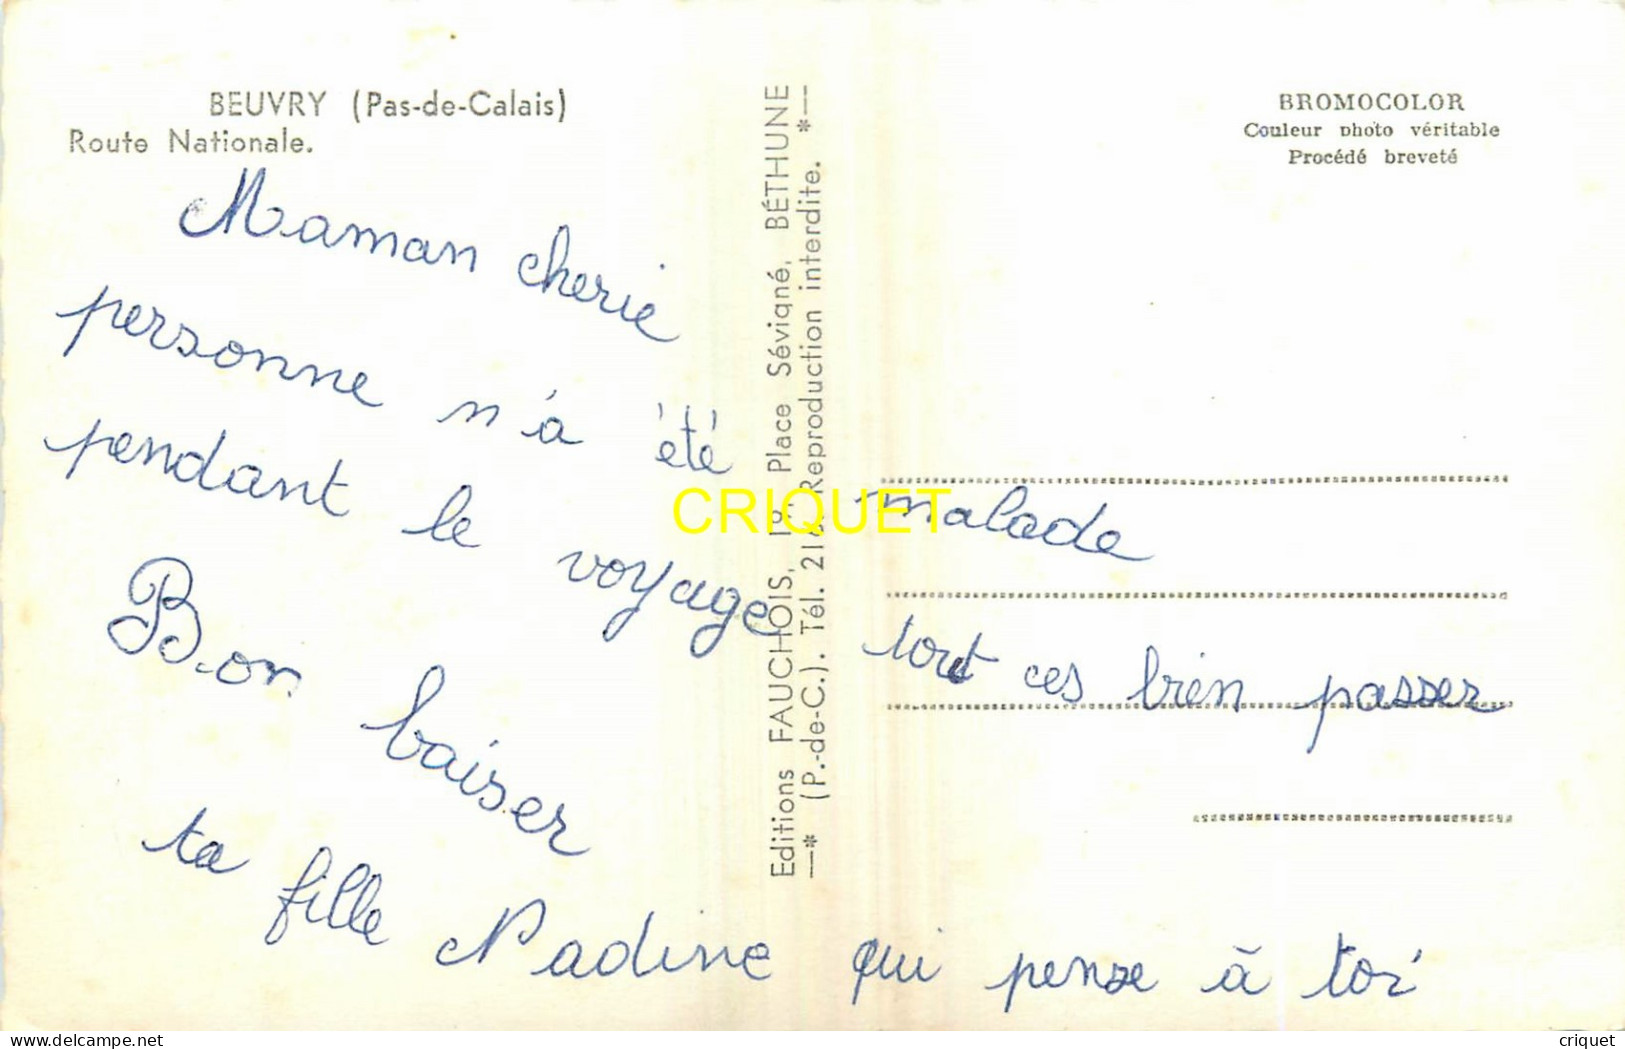 BEUVRY (Pas-de-Calais)
Route Nationale.
BROMOCOLOR
Couleur photo véritable
Procédé breveté
Editions FAUCHOIS, 19, Place Sévigné, BÉTHUNE
—* (P.-de-C.). Tél. 214. Reproduction interdite. *—
Maman cherie
personne n'a été malade
pendant le voyage tout ces bien passer
Bon baiser
ta fille Nadine qui pense à toi
CRIQUET
© criquet